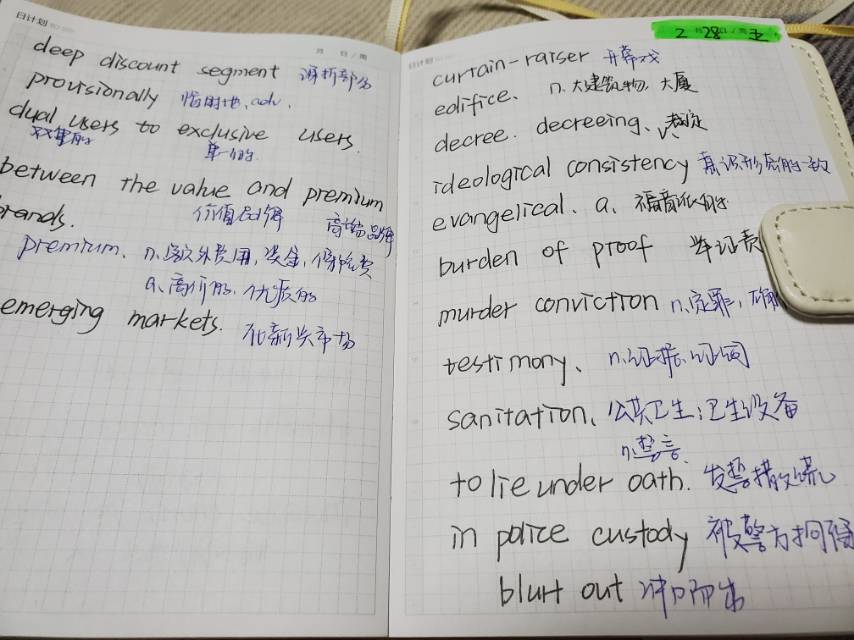 日计划
月 日/周
deep discount segment
provisionally 临时地, adv.
dual users to exclusive users.
双重的 单一的
between the value and premium
价值品牌 高端品牌
brands.
premium. n. 额外费用, 奖金, 保险费
a. 高价的. 优质的
emerging markets. 新兴市场
日计划
2月28日/周五
curtain-raiser 开幕戏
edifice. n. 大建筑物, 大厦
decree. decreeing. v. 裁定
ideological consistency 意识形态的一致
evangelical. a. 福音派的
burden of proof 举证责
murder conviction n. 定罪,
testimony. n. 证据. 证词
sanitation. 公共卫生; 卫生设备
n. 誓言.
to lie under oath. 发誓撒谎
in police custody 被警方拘留
blurt out 冲口而出